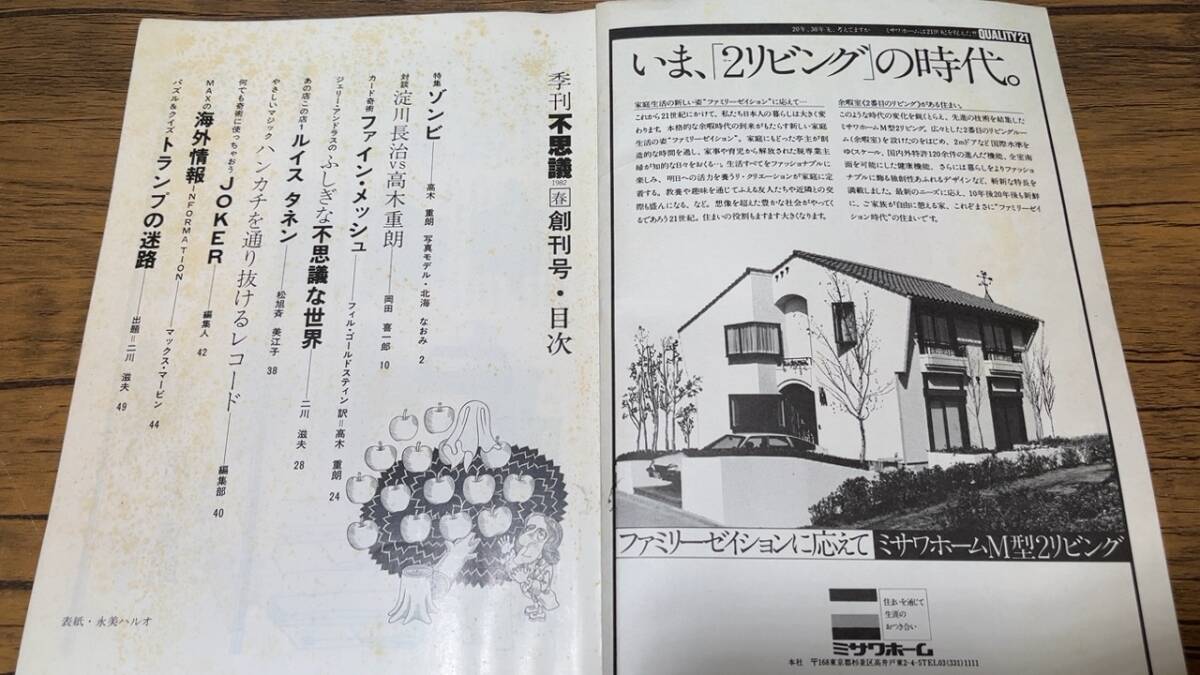 季刊不思議 1982 春 創刊号・目次
特集 ゾンビ 高木 重朗 写真モデル・北海 なおみ 2
対談 淀川長治VS高木重朗 岡田 喜一郎 10
カード奇術 ファイン・メッシュ フィル・ゴールドスティン 訳=高木 重朗 24
ジェリー・アンドラスの ふしぎな不思議な世界 二川 滋夫 28
あの店この店1 ルイス タネン 松旭斉 美江子 38
やさしいマジック ハンカチを通り抜けるレコード 編集部 40
何でも奇術に使っちゃおう JOKER 編集人 42
MAXの海外情報 INFORMATION マックス・マービン 44
パズル&クイズ トランプの迷路 出題=二川 滋夫 49
表紙・永美ハルオ
20年、30年を、考えてますか ミサワホームは21世紀を捉えた!! QUALITY21
いま、「2リビング」の時代。
家庭生活の新しい姿“ファミリーゼイション”に応えて…
これから21世紀にかけて、私たち日本人の暮らしは大きく変
わります。本格的な余暇時代の到来がもたらす新しい家庭
生活の姿“ファミリーゼイション”。家庭にもどった亭主が創
造的な時間を過し、家事や育児から解放された脱専業主
婦が知的な日々をおくる…。生活すべてをファッショナブルに
楽しみ、明日への活力を養うリ・クリエーションが家庭に定
着する。教養や趣味を通じてふえる友人たちや近隣との交
際も盛んになる、など。想像を超えた豊かな社会がやってく
るであろう21世紀。住まいの役割もますます大きくなります。
余暇室(2番目のリビング)がある住まい。
このような時代の変化を鋭くとらえ、先進の技術を結集した
ミサワホームM型2リビング。広々とした2番目のリビングルー
ム(余暇室)を設けたのをはじめ、2mドアなど国際水準を
ゆくスケール、国内外特許120余件の進んだ機能、全室南
面を可能にした健康機能、さらには暮らしをよりファッショ
ナブルに飾る独創性あふれるデザインなど、斬新な特長を
満載しました。最新のニーズに応え、10年後20年後も新鮮
に、ご家族が自由に憩える家、これぞまさに“ファミリーゼイ
ション時代”の住まいです。
ファミリーゼイションに応えて ミサワホームM型2リビング
住まいを通じて
生涯の
おつき合い
ミサワホーム
本社 〒168東京都杉並区高井戸東2-4-5TEL03(331)1111